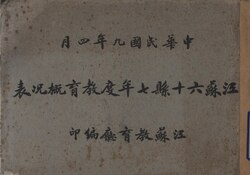 中華民國九年四月
江蘇六十縣七年度教育概況表
江蘇教育廳編印